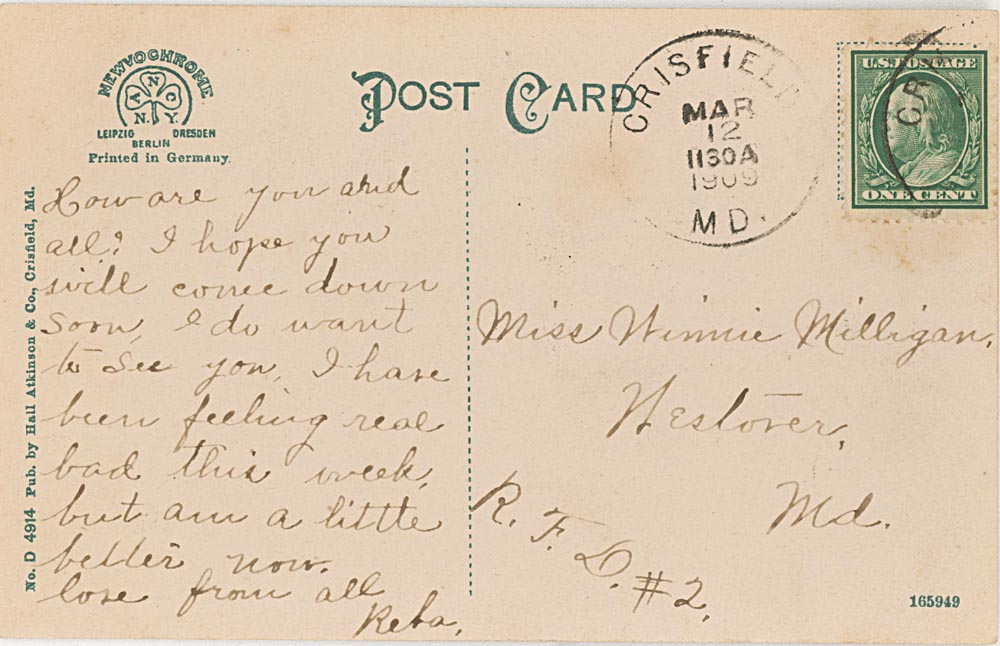 NEWVOCHROME
A N C
N.Y.
LEIPZIG DRESDEN
BERLIN
Printed in Germany.
POST CARD
CRISFIELD
MAR
12
1130A
1909
MD.
U.S. POSTAGE
ONE CENT
CR
How are you and
all? I hope you
will come down
soon, I do want
to see you, I have
been feeling real
bad this week,
but am a little
better now.
love from all
Reba,
Miss Winnie Milligan,
Westover,
Md.
R. F. D. #2,
No. D 4914 Pub. by Hall Atkinson & Co., Crisfield, Md.
165949